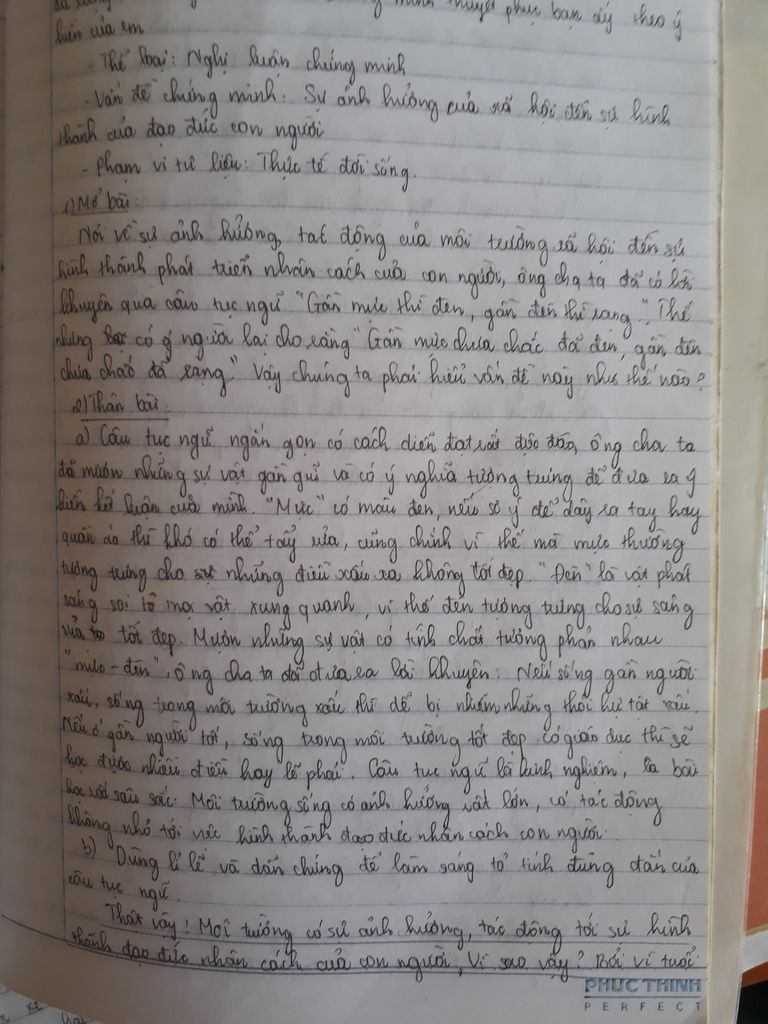 minh thuyết phục bạn ấy theo ý
kiến của em.
- Thể loại: Nghị luận chứng minh
- Vấn đề chứng minh: Sự ảnh hưởng của xã hội đến sự hình
thành của đạo đức con người
- Phạm vi tư liệu: Thực tế đời sống.
1) Mở bài:
Nói về sự ảnh hưởng, tác động của môi trường xã hội đến sự
hình thành phát triển nhân cách của con người, ông cha ta đã có lời
khuyên qua câu tục ngữ "Gần mực thì đen, gần đèn thì rạng". Thế
nhưng có ý người lại cho rằng "Gần mực chưa chắc đã đen, gần đèn
chưa chắc đã rạng." Vậy chúng ta phải hiểu vấn đề này như thế nào?
2) Thân bài:
a) Câu tục ngữ ngắn gọn có cách diễn đạt rất độc đáo, ông cha ta
đã mượn những sự vật gần gũi và có ý nghĩa tượng trưng để đưa ra ý
kiến kết luận của mình. "Mực" có màu đen, nếu sơ ý để dây ra tay hay
quần áo thì khó có thể tẩy rửa, cũng chính vì thế mà mực thường
tượng trưng cho sự những điều xấu xa không tốt đẹp. "Đèn" là vật phát
sáng soi tỏ mọi vật xung quanh, vì thế đèn tượng trưng cho sự sáng
sủa tốt đẹp. Mượn những sự vật có tính chất tương phản nhau
"mực - đèn", ông cha ta đã đưa ra lời khuyên: Nếu sống gần người
xấu, sống trong môi trường xấu thì dễ bị nhiễm những thói hư tật xấu.
Nếu ở gần người tốt, sống trong môi trường tốt đẹp có giáo dục thì sẽ
học được nhiều điều hay lẽ phải. Câu tục ngữ là kinh nghiệm, là bài
học sâu sắc: Môi trường sống có ảnh hưởng rất lớn, có tác động
không nhỏ tới việc hình thành đạo đức nhân cách con người.
b) Dùng lí lẽ và dẫn chứng để làm sáng tỏ tính đúng đắn của
câu tục ngữ.
Thật vậy! Môi trường có sự ảnh hưởng, tác động tới sự hình
thành đạo đức nhân cách của con người, Vì sao vậy? Bởi vì tuổi
PHUC THINH
PERFECT